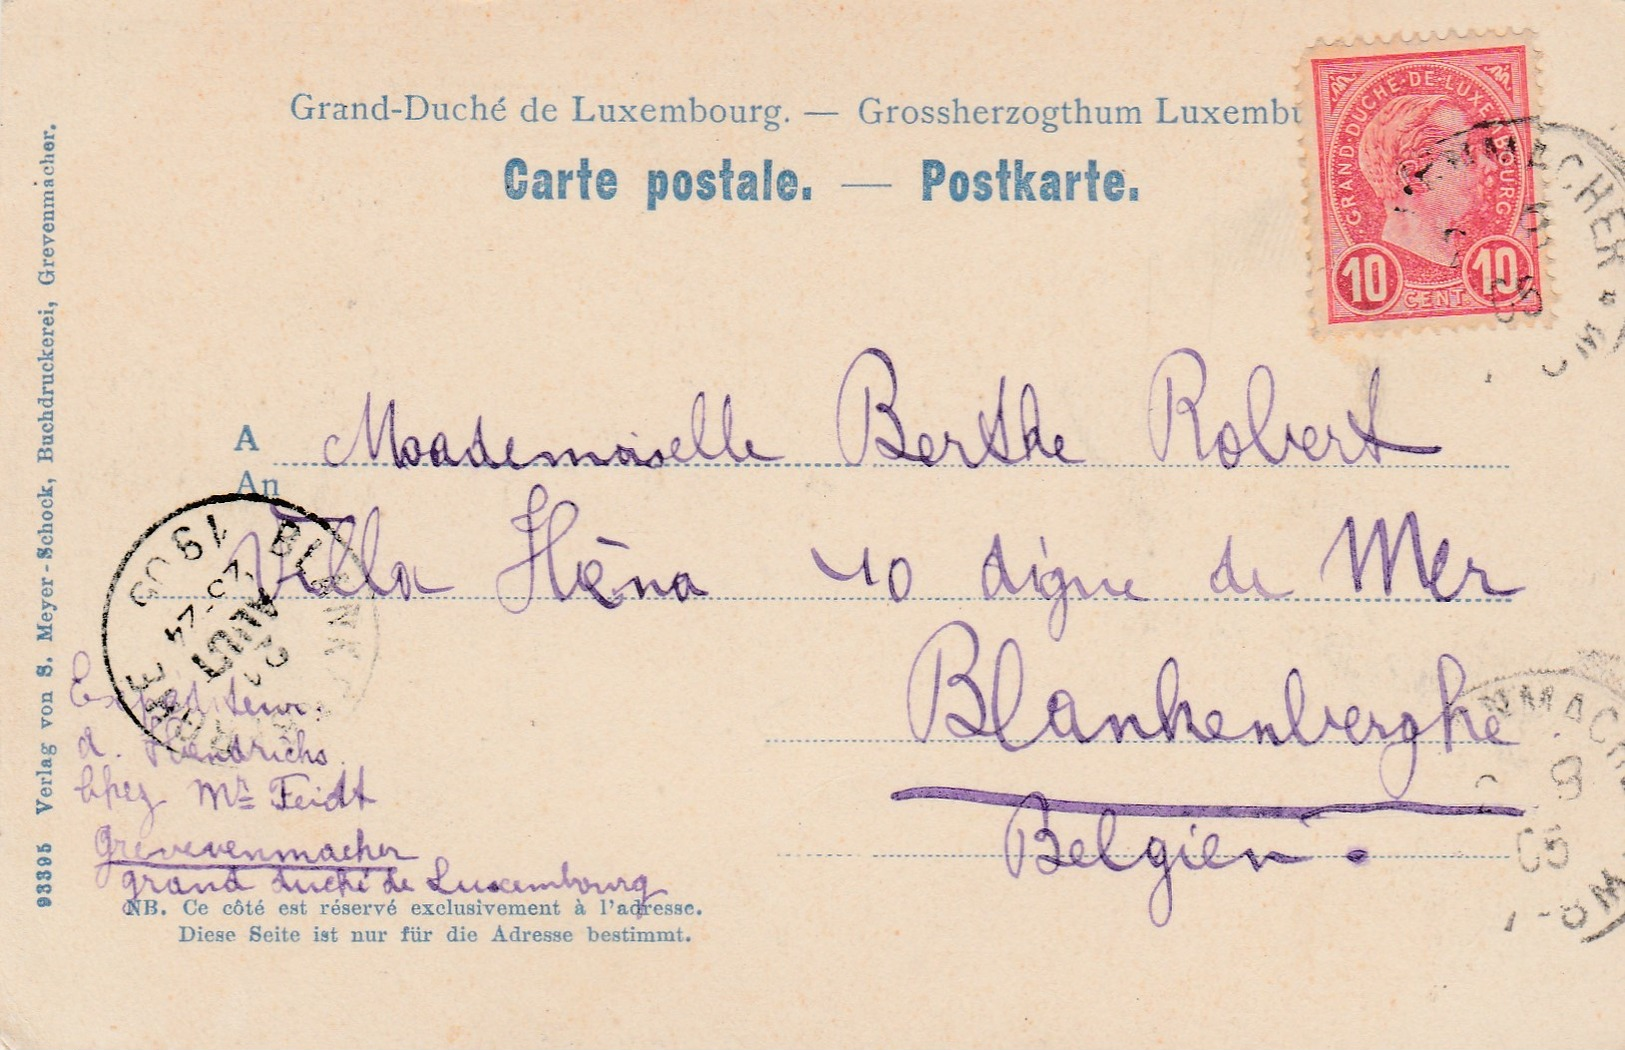 Grand-Duché de Luxembourg. — Grossherzogthum Luxembu
Carte postale. — Postkarte.
GRAND-DUCHÉ-DE-LUXEMBOURG
10 CENT. 10
MACHER
05
A
An
Mademoiselle Berthe Robert
Villa Héna 10 digue de Mer
Blankenberghe
Belgien.
BLANK
1905
23-24
AOUT
21
Expéditeur.
A. Hendrichs.
Chez Mr Feidt
Grevevenmacher
grand duché de Luxembourg
NMACH
05
NB. Ce côté est réservé exclusivement à l'adresse.
Diese Seite ist nur für die Adresse bestimmt.
93395 Verlag von S. Meyer-Schock, Buchdruckerei, Grevenmacher.